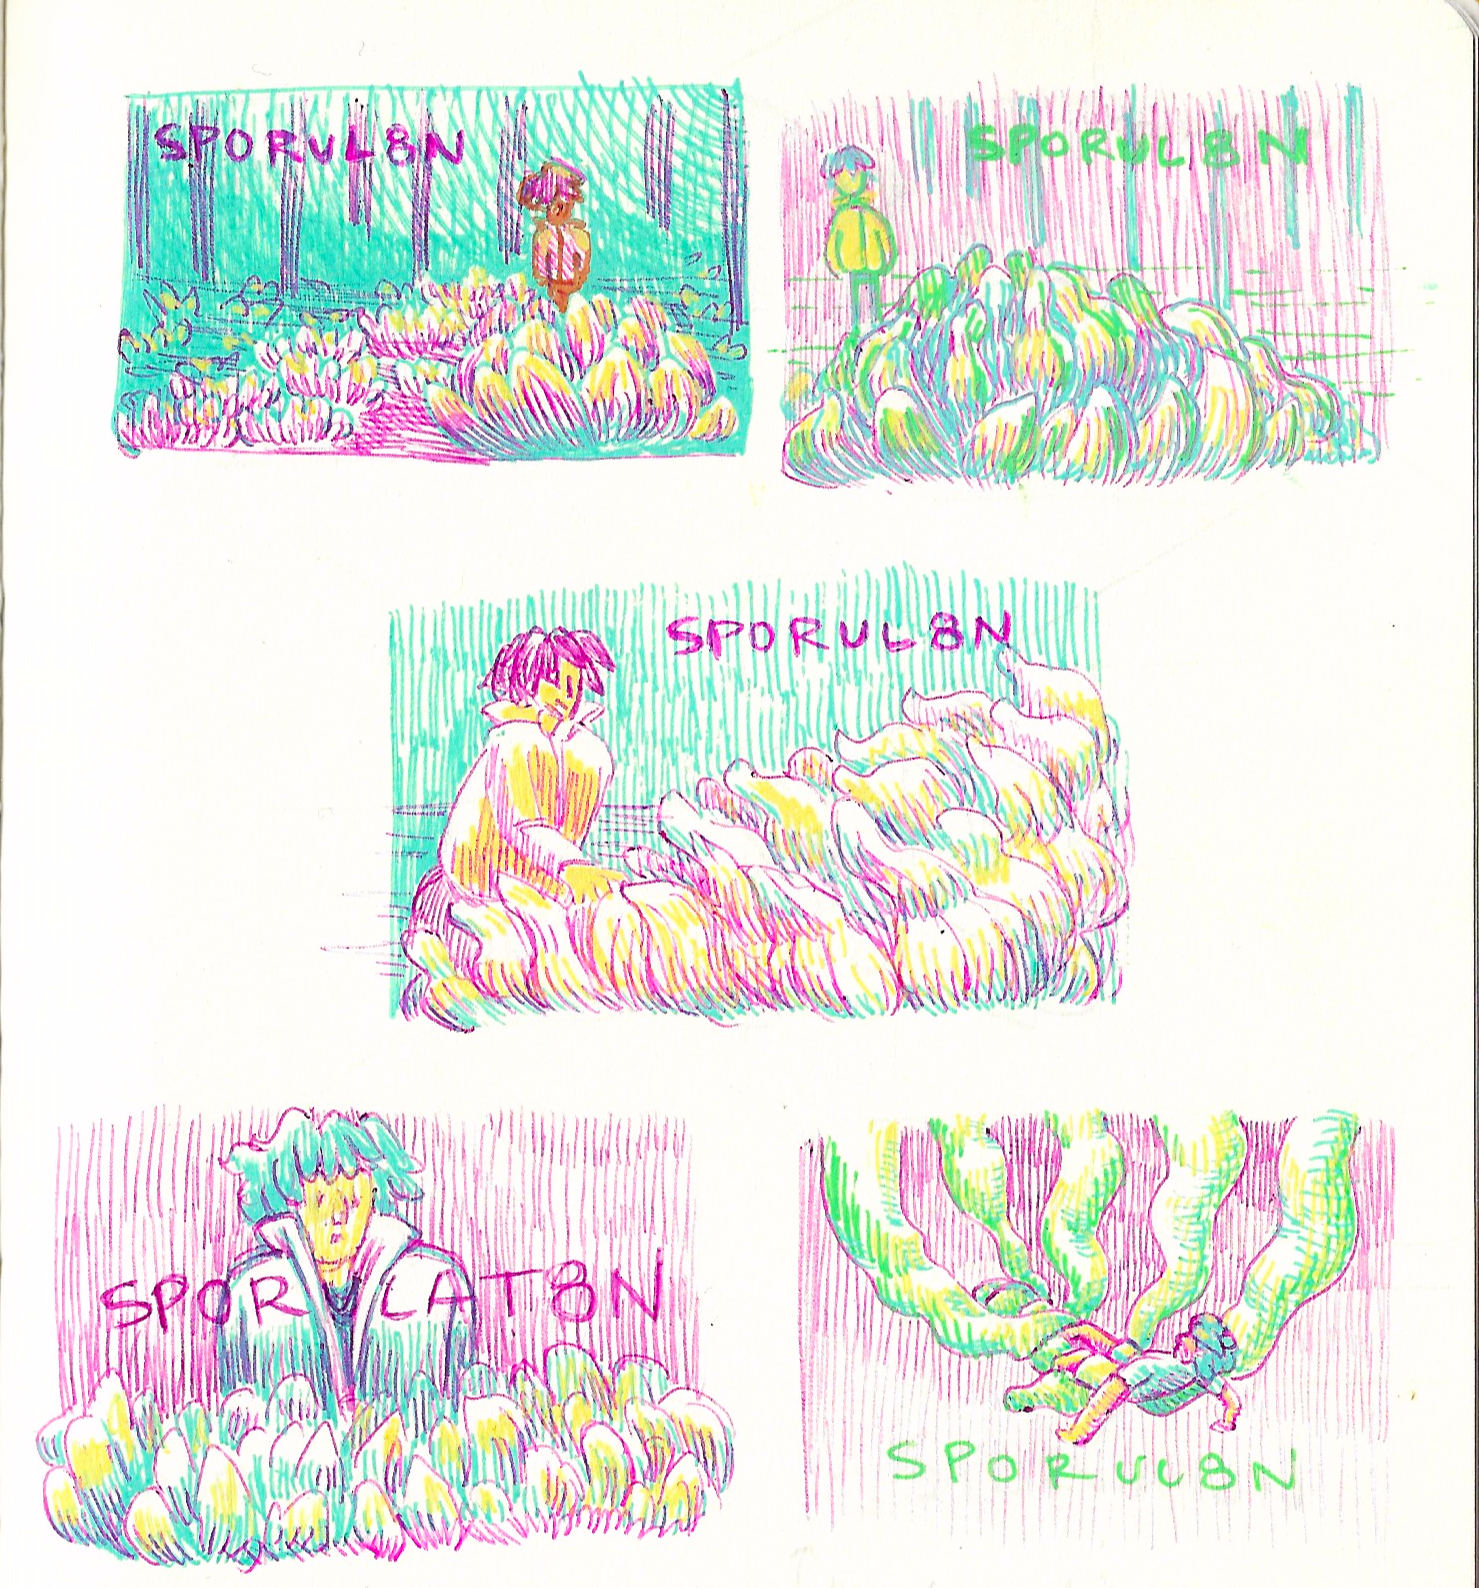 SPORUL8N
SPORUL8N
SPORUL8N
SPORULAT8N
SPORUL8N